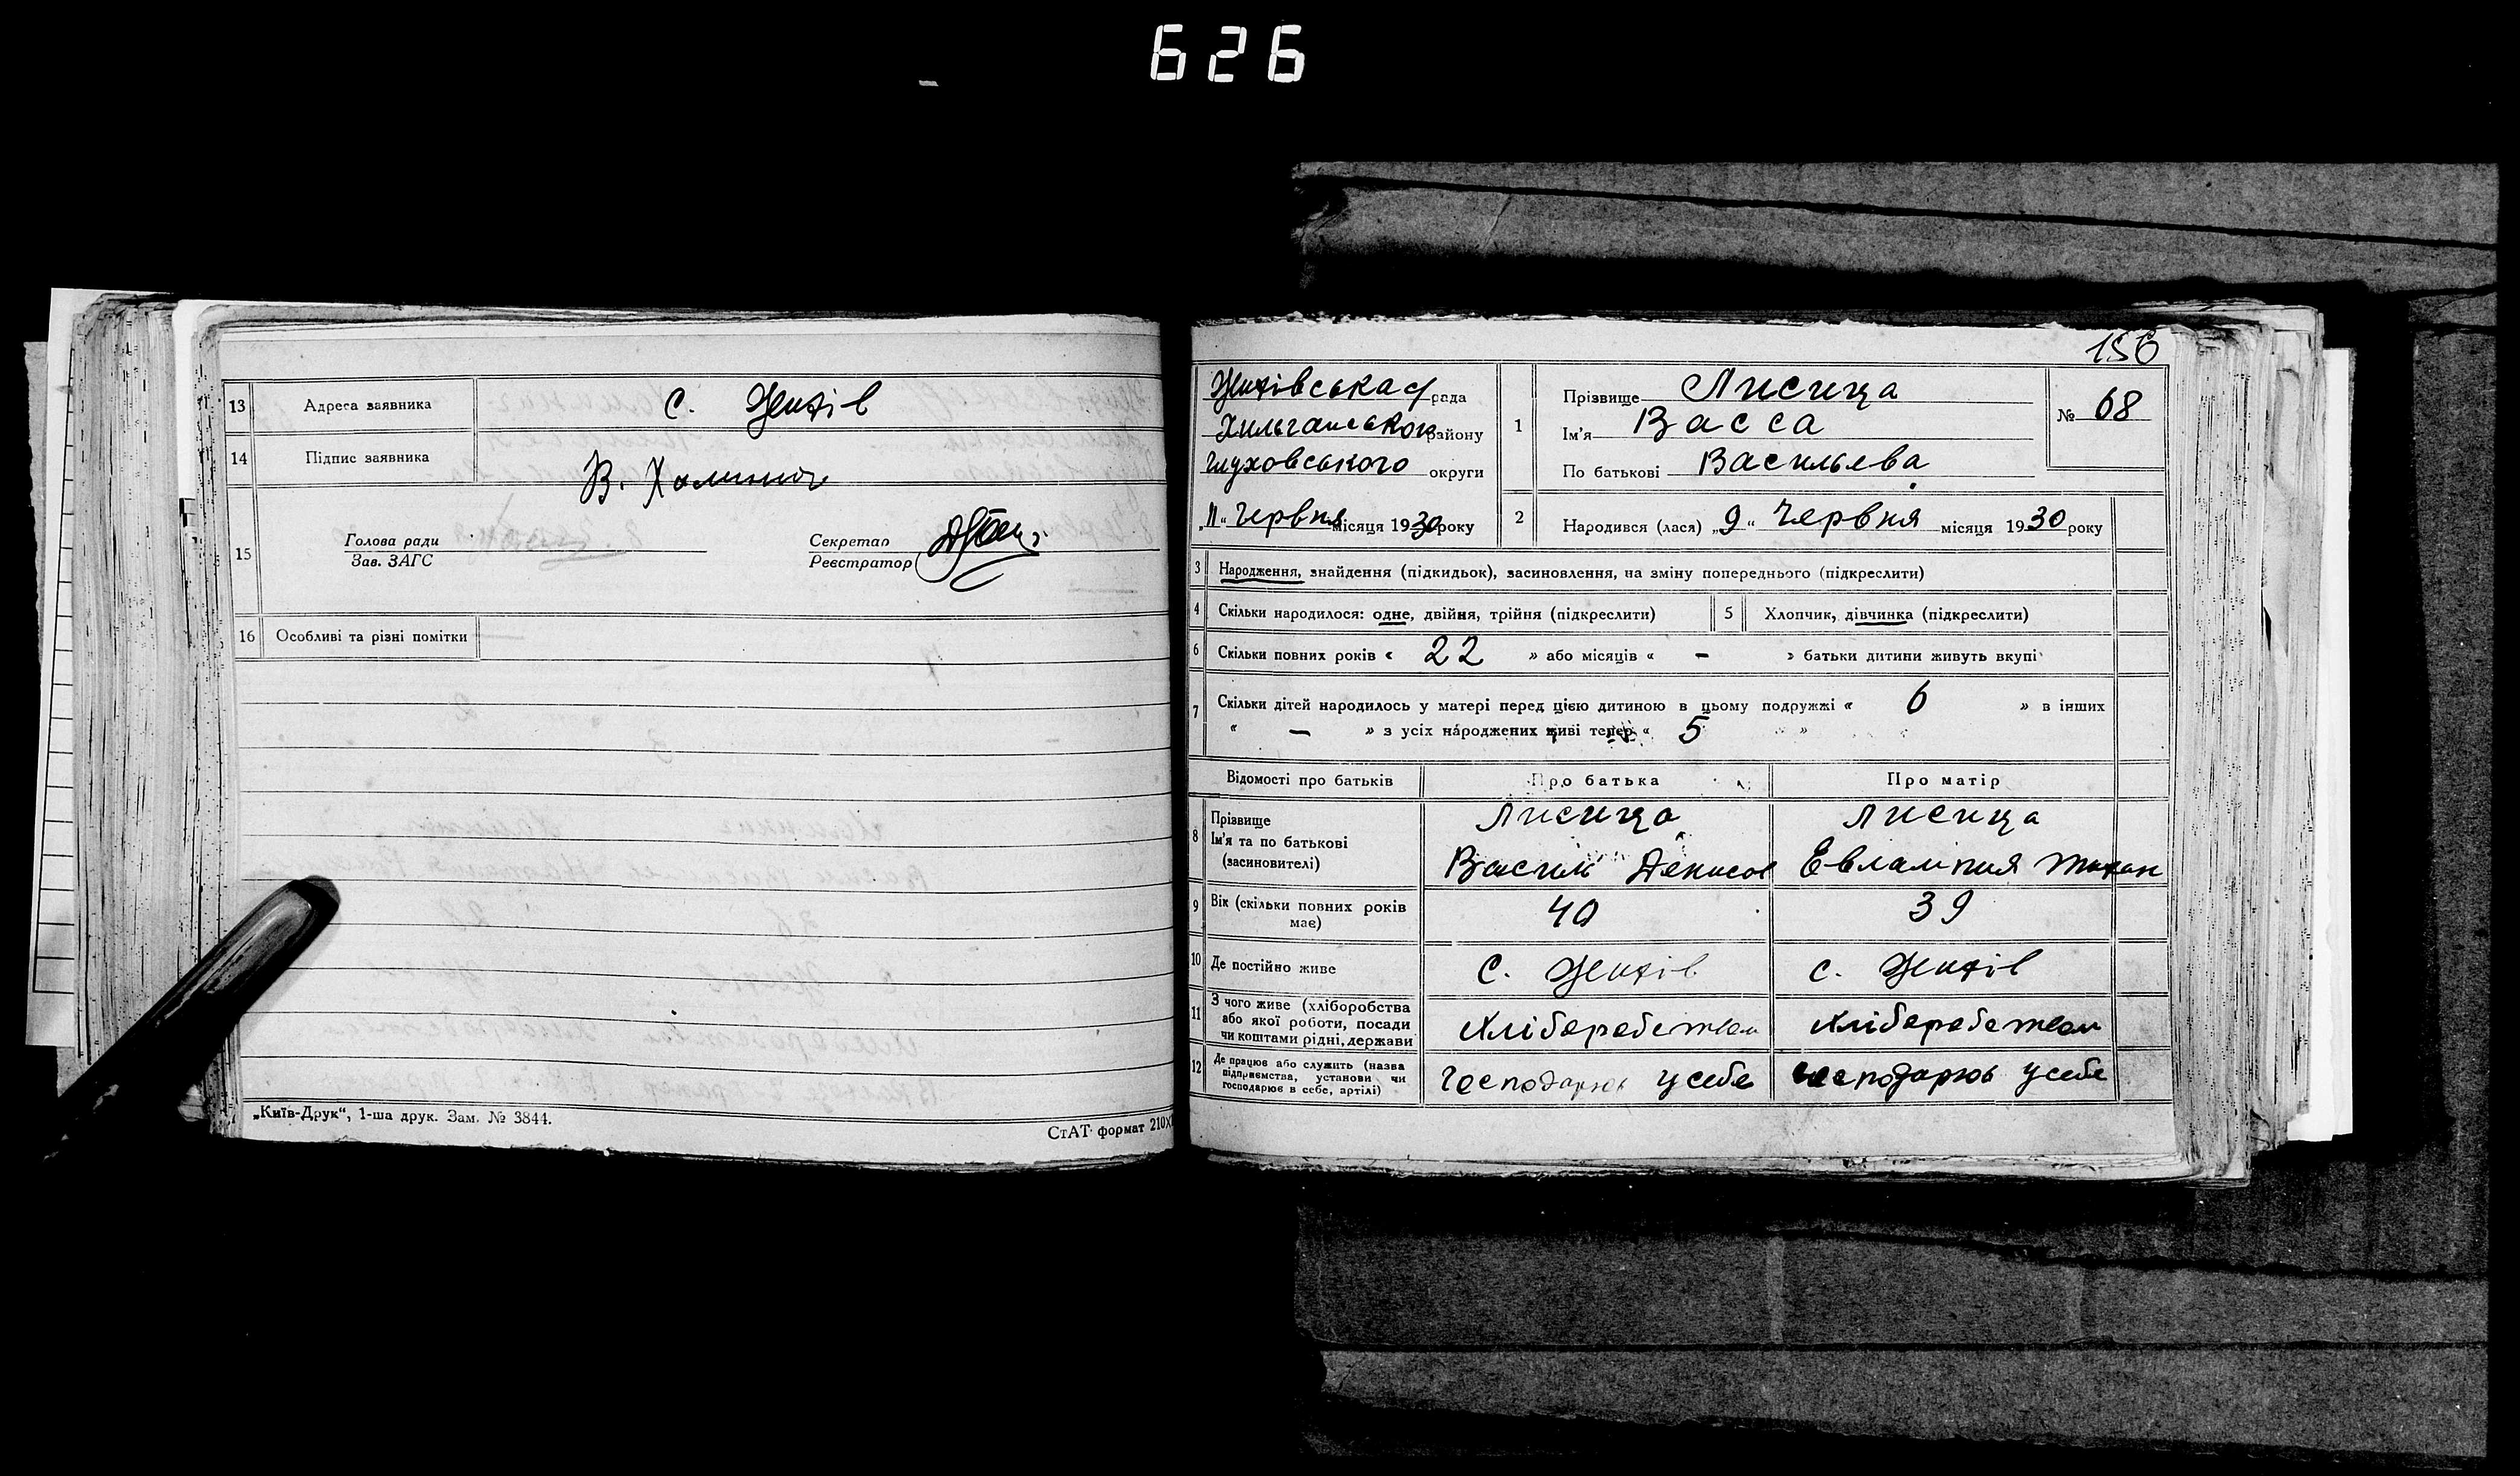 626
13 Адреса заявника с.
14 Підпис заявника В.
15 Голова ради
Зав. ЗАГС
Секретар
Реєстратор
16 Особливі та різні помітки
„Київ-Друк“, 1-ша друк. Зам. № 3844.
СтАТ формат 210×
156
рада
району
Глуховського округи
„11“ Червня місяця 1930 року
1 Прізвище Лисица
Ім'я Васса
По батькові Васильева
№ 68
2 Народився (лася) „9“ Червня місяця 1930 року
3 Народження, знайдення (підкидьок), засиновлення, на зміну попереднього (підкреслити)
4 Скільки народилося: одне, двійня, трійня (підкреслити) 5 Хлопчик, дівчинка (підкреслити)
6 Скільки повних років « 22 » або місяців « – » батьки дитини живуть вкупі
7 Скільки дітей народилось у матері перед цією дитиною в цьому подружжі « 6 » в інших
« – » з усіх народжених живі тепер « 5 »
Відомості про батьків Про батька Про матір
8 Прізвище Лисица Лисица
Ім'я та по батькові
(засиновителі) Василь Денисов Евлампия
9 Вік (скільки повних років має) 40 39
10 Де постійно живе с. с.
11 З чого живе (хліборобства
або якої роботи, посади
чи коштами рідні, держави
12 Де працює або служить (назва
підприємства, установи чи
господарює в себе, артілі) господарюв усебе господарюв усебе